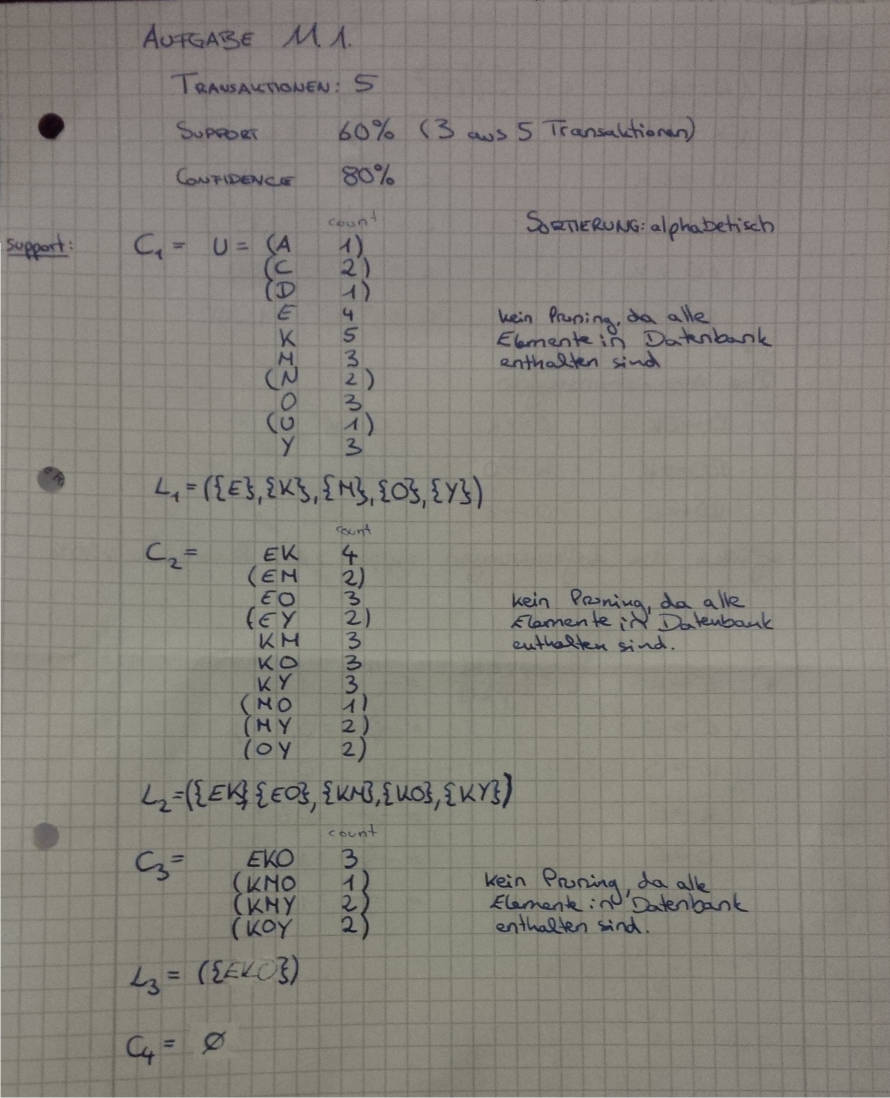 AUFGABE 11.1.
TRANSAKTIONEN: 5
SUPPORT 60% (3 aus 5 Transaktionen)
CONFIDENCE 80%
SORTIERUNG: alphabetisch
count
Support: C1 = U = (A 1)
(C 2)
(D 1)
E 4
K 5
M 3
(N 2)
O 3
(U 1)
Y 3
kein Pruning, da alle
Elemente in Datenbank
enthalten sind
L1 = ({E},{K},{M},{O},{Y})
count
C2 = EK 4
(EM 2)
EO 3
(EY 2)
KM 3
KO 3
KY 3
(MO 1)
(MY 2)
(OY 2)
kein Pruning, da alle
Elemente in Datenbank
enthalten sind.
L2 = ({EK},{EO},{KM},{KO},{KY})
count
C3 = EKO 3
(KMO 1)
(KMY 2)
(KOY 2)
kein Pruning, da alle
Elemente in Datenbank
enthalten sind.
L3 = ({EKO})
C4 = ∅